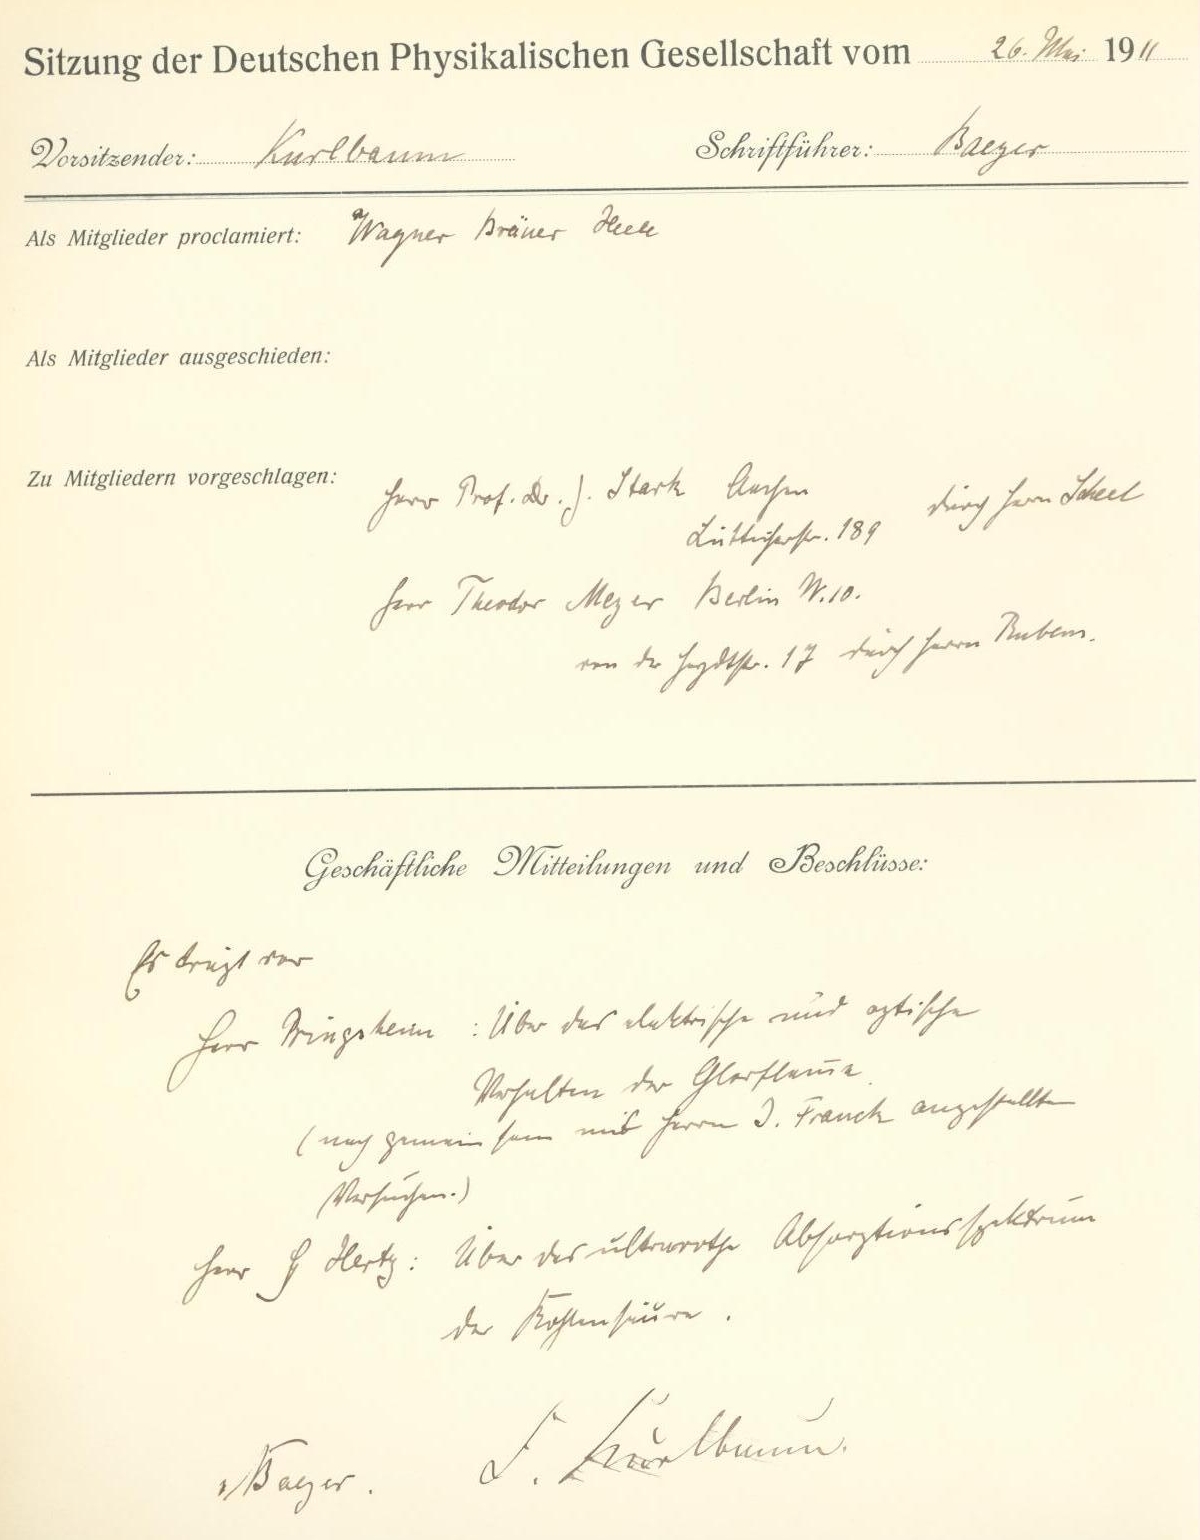 Sitzung der Deutschen Physikalischen Gesellschaft vom 26. Mai 1911
Vorsitzender: Kurlbaum Schriftführer: Baeyer
Als Mitglieder proclamiert: Wagner
Als Mitglieder ausgeschieden:
Zu Mitgliedern vorgeschlagen:
Herr Prof. Dr. J. Stark Aachen durch Herrn Scheel
Lütticherstr. 189
Herr Theodor Meyer Berlin W. 10.
von der Heydtstr. 17 durch Herrn Rubens.
Geschäftliche Mitteilungen und Beschlüsse:
Es trägt vor
Herr Pringsheim : Über das elektrische und optische
Verhalten der Chlorflam̅e.
(nach gemeinsam mit Herrn J. Franck angestellten
Versuchen.)
Herr G Hertz: Über das ultrarothe Absorptionsspektrum
der Kohlensäure.
Baeyer. F. Kurlbaum.